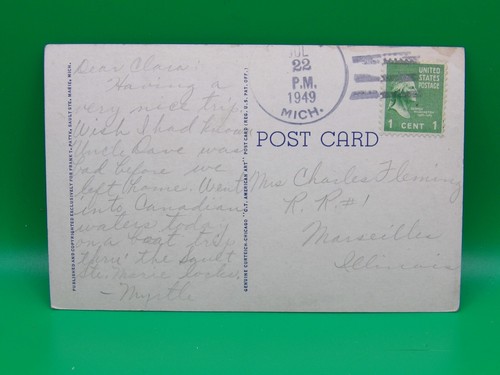 Dear Clara:
Having a
very nice trip.
Wish I had known
Uncle Dave was
bad before we
left home. Went
into Canadian
waters today
on a boat trip
thru' the Sault
Ste. Marie locks.
- Myrtle
PUBLISHED AND DISTRIBUTED EXCLUSIVELY FOR SAULT STE. MARIE, MICH.
GENUINE CURTEICH-CHICAGO "C.T. AMERICAN ART" POST CARD (REG. U.S. PAT. OFF.)
JUL
22
P.M.
1949
MICH.
UNITED
STATES
POSTAGE
1 CENT 1
POST CARD
Mrs Charles Fleming
R. R. # 1
Marseilles
Illinois